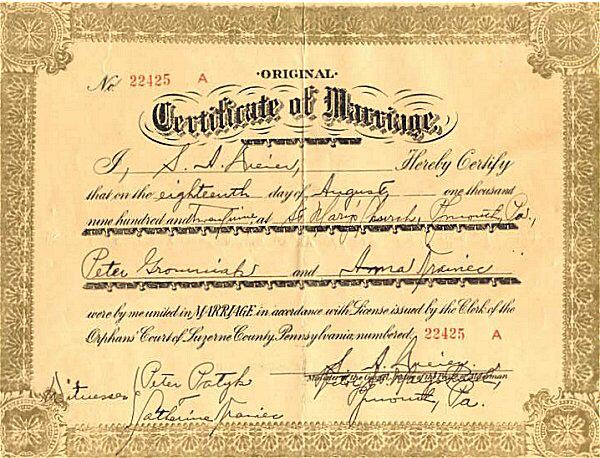 ·ORIGINAL·
No. 22425 A
Certificate of Marriage.
I, S. A. Hereby Certify
that on the eighteenth day of August one thousand
nine hundred and at St. Mary's Church, Pa.,
Peter and Anna
were by me united in MARRIAGE in accordance with License issued by the Clerk of the
Orphans' Court of Luzerne County, Pennsylvania, numbered 22425 A
S. A.
Minister of the Gospel, Justice of the Peace or Alderman
Pa.
Witnesses
Peter
Katherine